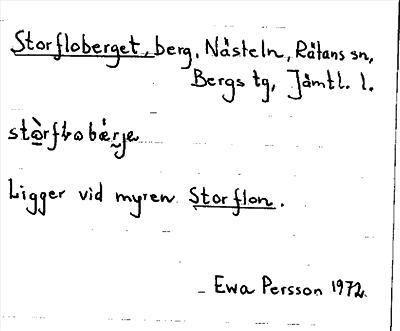 Storfloberget, berg, Nästeln, Rätans sn,
Bergs tg, Jämtl. l.
Ligger vid myren Storflon.
Ewa Persson 1972.